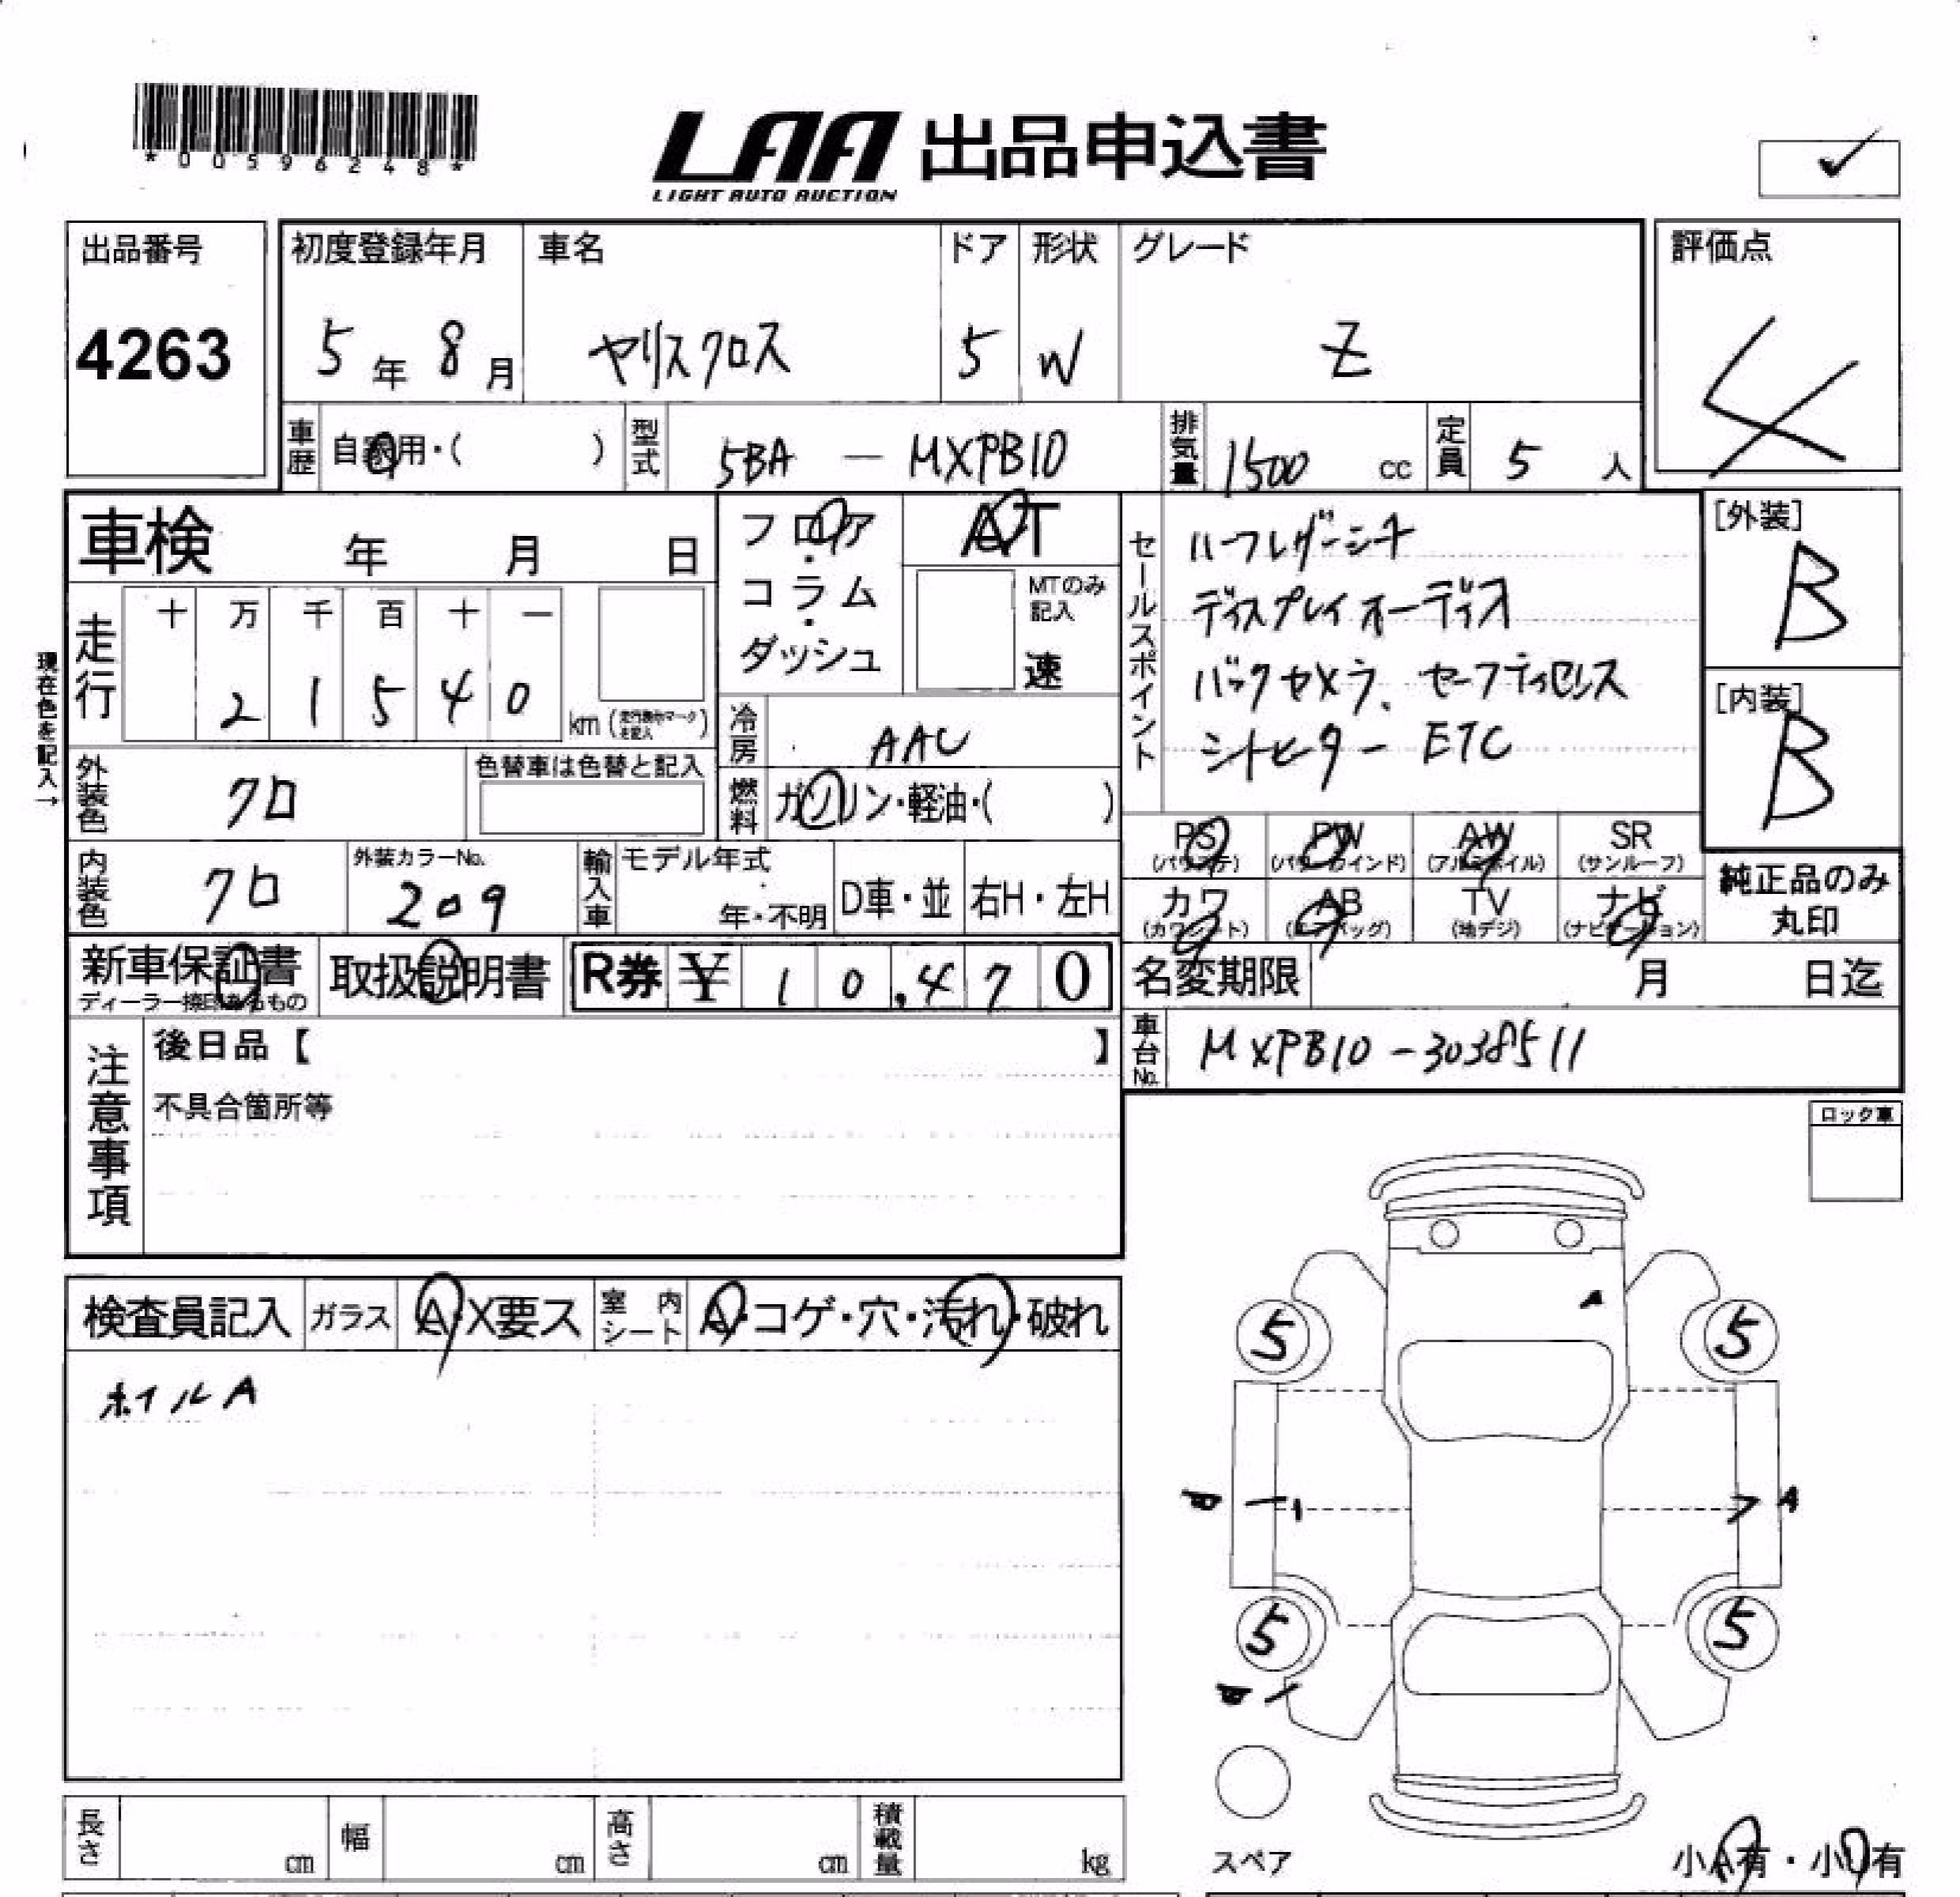 *00596248*
LAA 出品申込書
LIGHT AUTO AUCTION
出品番号
4263
初度登録年月
5年8月
車名
ヤリスクロス
ドア
5
形状
W
グレード
Z
評価点
4
車歴
自家用・( )
型式
5BA - MXPB10
排気量
1500 cc
定員
5 人
車検 年 月 日
フロア・コラム・ダッシュ
AT
MTのみ記入
速
セールスポイント
ハーフレザーシート
ディスプレイオーディオ
バックカメラ、セーフティセンス
シートヒーター ETC
[外装]
B
[内装]
B
現在色を記入→
走行
十 万 千 百 十 一
2 1 5 4 0
km (走行表示マークを記入)
冷房
AAC
燃料
ガソリン・軽油・( )
外装色
クロ
色替車は色替と記入
内装色
クロ
外装カラーNo.
209
輸入車
モデル年式
年・不明
D車・並
右H・左H
PS
(パワステ)
PW
(パワーウインド)
AW
(アルミホイル)
SR
(サンルーフ)
カワ
(カワシート)
AB
(エアバッグ)
TV
(地デジ)
ナビ
(ナビゲーション)
純正品のみ
丸印
新車保証書
取扱説明書
R券 ¥ 10,470
名変期限 月 日迄
車台No.
MXPB10-3038511
注意事項
後日品【 】
不具合箇所等
ロック車
検査員記入
ガラス
A・X要ス
室内シート
A・コゲ・穴・汚れ・破れ
ホイルA
A
5
5
A
5
5
長さ cm
幅 cm
高さ cm
積載量 kg
スペア
小A有・小U有